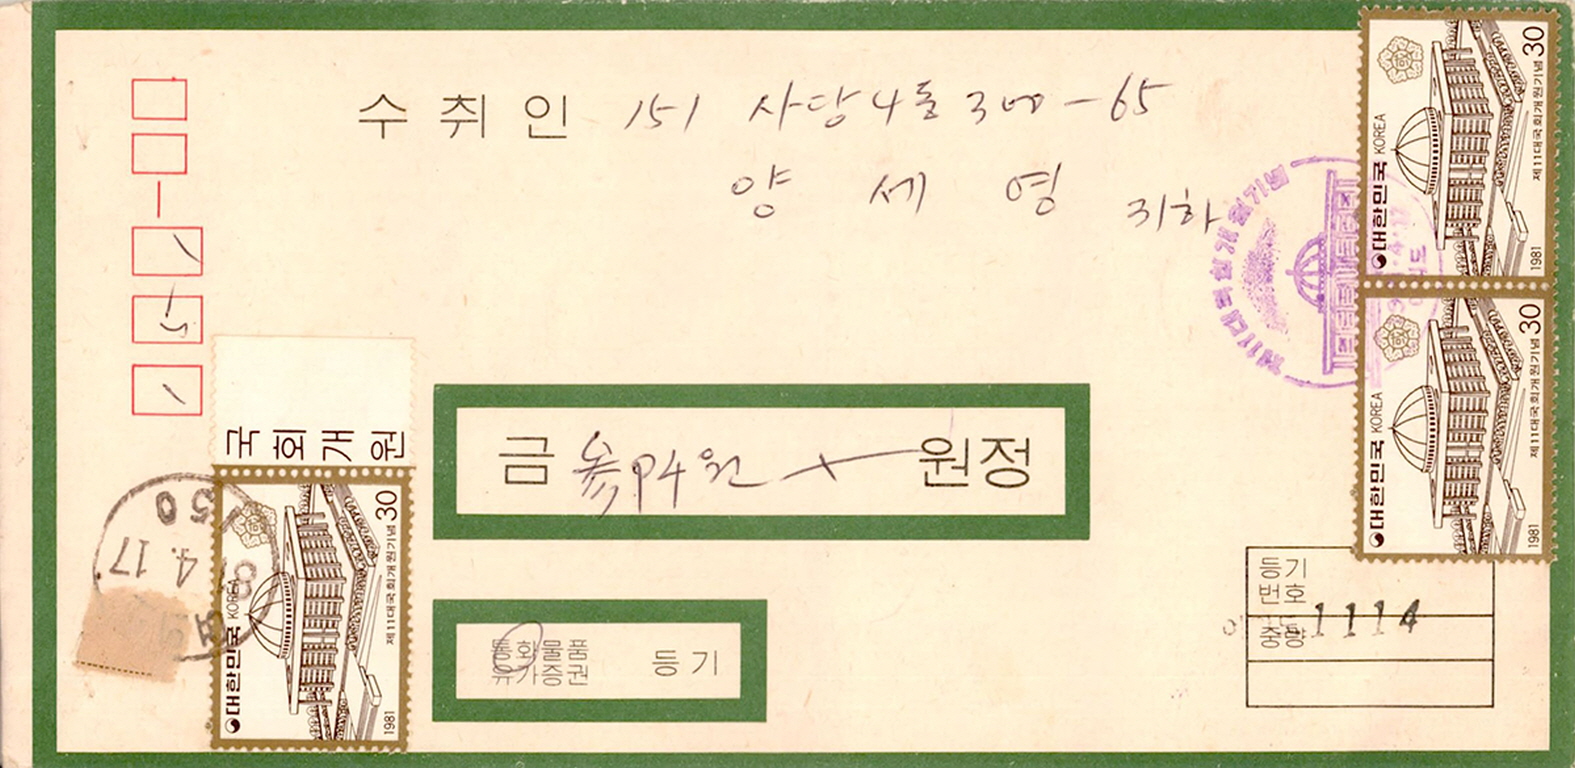 수취인 151 사당4동 300-65
양 세 영 지하
제11대국회개원기념
금 원 원정
통화물품
유가증권
등기
등기
번호 1114
중량
국회개원
대한민국 KOREA
제11대국회개원기념 30
1981
대한민국 KOREA
제11대국회개원기념 30
1981
대한민국 KOREA
제11대국회개원기념 30
1981
151
4.17
150